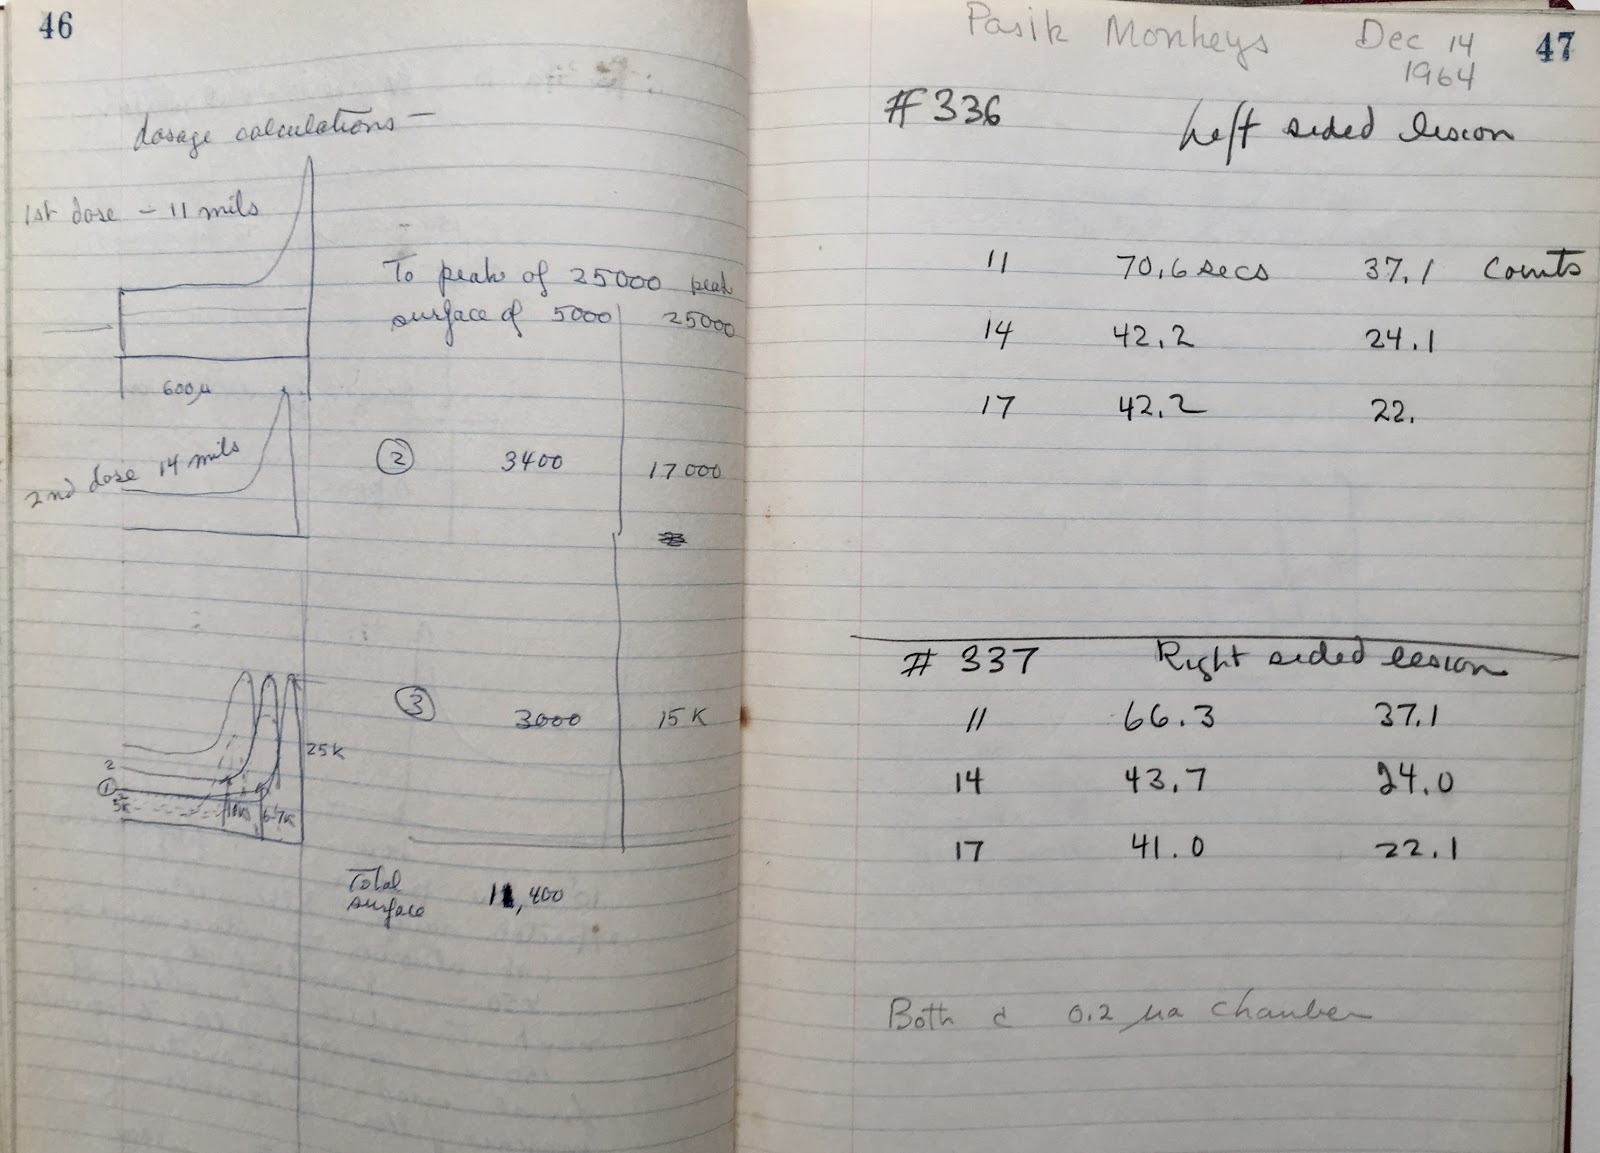 46
dosage calculations —
1st dose – 11 mils
To peak of 25000 peak
surface of 5000 25000
600µ
2nd dose 14 mils
② 3400 17000
③ 3000 15K
25K
2
①
5K 10K 6-7K
Total
surface 11,400
Pasik Monkeys Dec 14 47
1964
# 336 Left sided lesion
11 70.6 secs 37.1 Counts
14 42.2 24.1
17 42.2 22.
# 337 Right sided lesion
11 66.3 37.1
14 43.7 24.0
17 41.0 22.1
Both c̄ 0.2 µa chamber